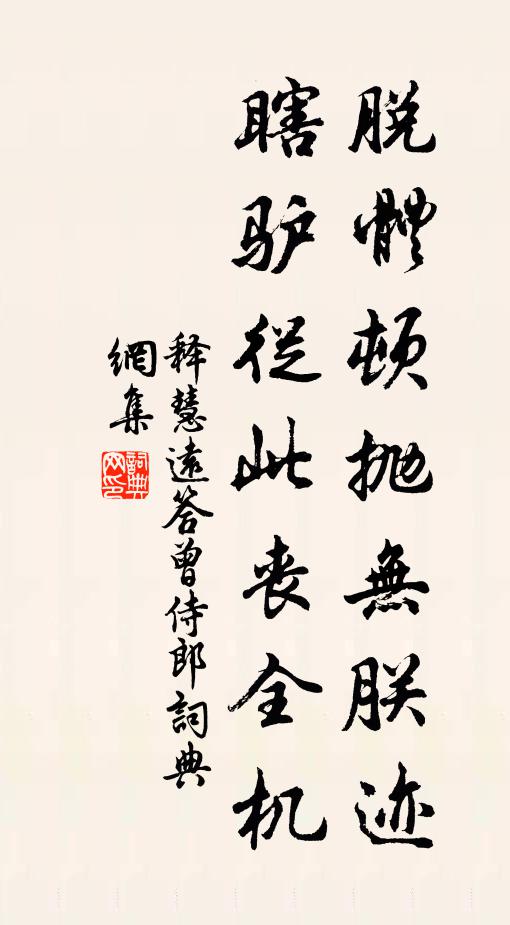 脱體頓抛無朕迹
瞎驴從此丧全机
释慧遠答曾侍郎詞典
網集
詞典
网印